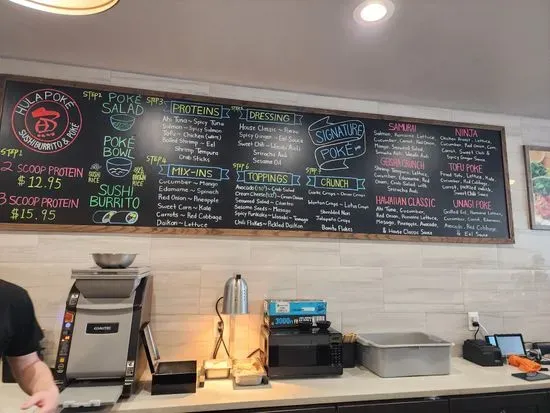 HULA POKÉ
SUSHI BURRITO & POKÉ
STEP 1
2 SCOOP PROTEIN
$12.95
3 SCOOP PROTEIN
$15.95
STEP 2
POKÉ
SALAD
POKÉ
BOWL
BROWN
RICE
WHITE
RICE
SUSHI
BURRITO
STEP 3
PROTEINS
Ahi Tuna ~ Spicy Tuna
Salmon ~ Spicy Salmon
Tofu ~ Chicken
Boiled Shrimp ~ Eel
Shrimp Tempura
Crab Sticks
STEP 4
MIX-INS
Cucumber ~ Mango
Edamame ~ Corn
Red Onion ~ Pineapple
Sweet Corn ~ Kale
Carrots ~ Red Cabbage
Daikon ~ Lettuce
DRESSING
House Classic ~ Ponzu
Spicy Ginger ~ Eel Sauce
Sweet Chili ~ Wasabi Aioli
Sriracha Aioli
Sesame Oil
TOPPINGS
Avocado ~ Crab Salad
Cream Cheese
Seaweed Salad ~ Cilantro
Sesame Seeds ~ Masago
Spicy Furikake ~ Wasabi ~ Tamago
Chili Flakes ~ Pickled Daikon
SIGNATURE
POKÉ
CRUNCH
Garlic Crisps ~ Onion Crisps
Wonton ~ Lotus Chips
Shredded Nori
Jalapeño Crisps
Bonito Flakes
SAMURAI
Salmon, Romaine, Lettuce,
Cucumber, Carrot, Red Onion,
Mango, Seaweed Salad
& Sriracha Aioli
GEISHA CRUNCH
Shrimp Tempura, Lettuce,
Cucumber, Edamame, Red
Onion, Crab Salad with
Sriracha Aioli
HAWAIIAN CLASSIC
Ahi Tuna, Cucumber,
Red Onion, Romaine Lettuce,
Masago, Pineapple, Avocado,
& House Classic Sauce
NINJA
Chicken Breast, Lettuce,
Cucumber, Red Onion
Sweet Corn with
Spicy Ginger Sauce
TOFU POKE
Fried Tofu, Lettuce, Kale,
Cucumber, Red Onion,
Carrot, Pickled Radish,
Sweet Chili Sauce
UNAGI POKE
Grilled Eel, Romaine Lettuce,
Cucumber, Carrot, Edamame
Avocado, Red Cabbage
& Eel Sauce
CUCKOO
3000